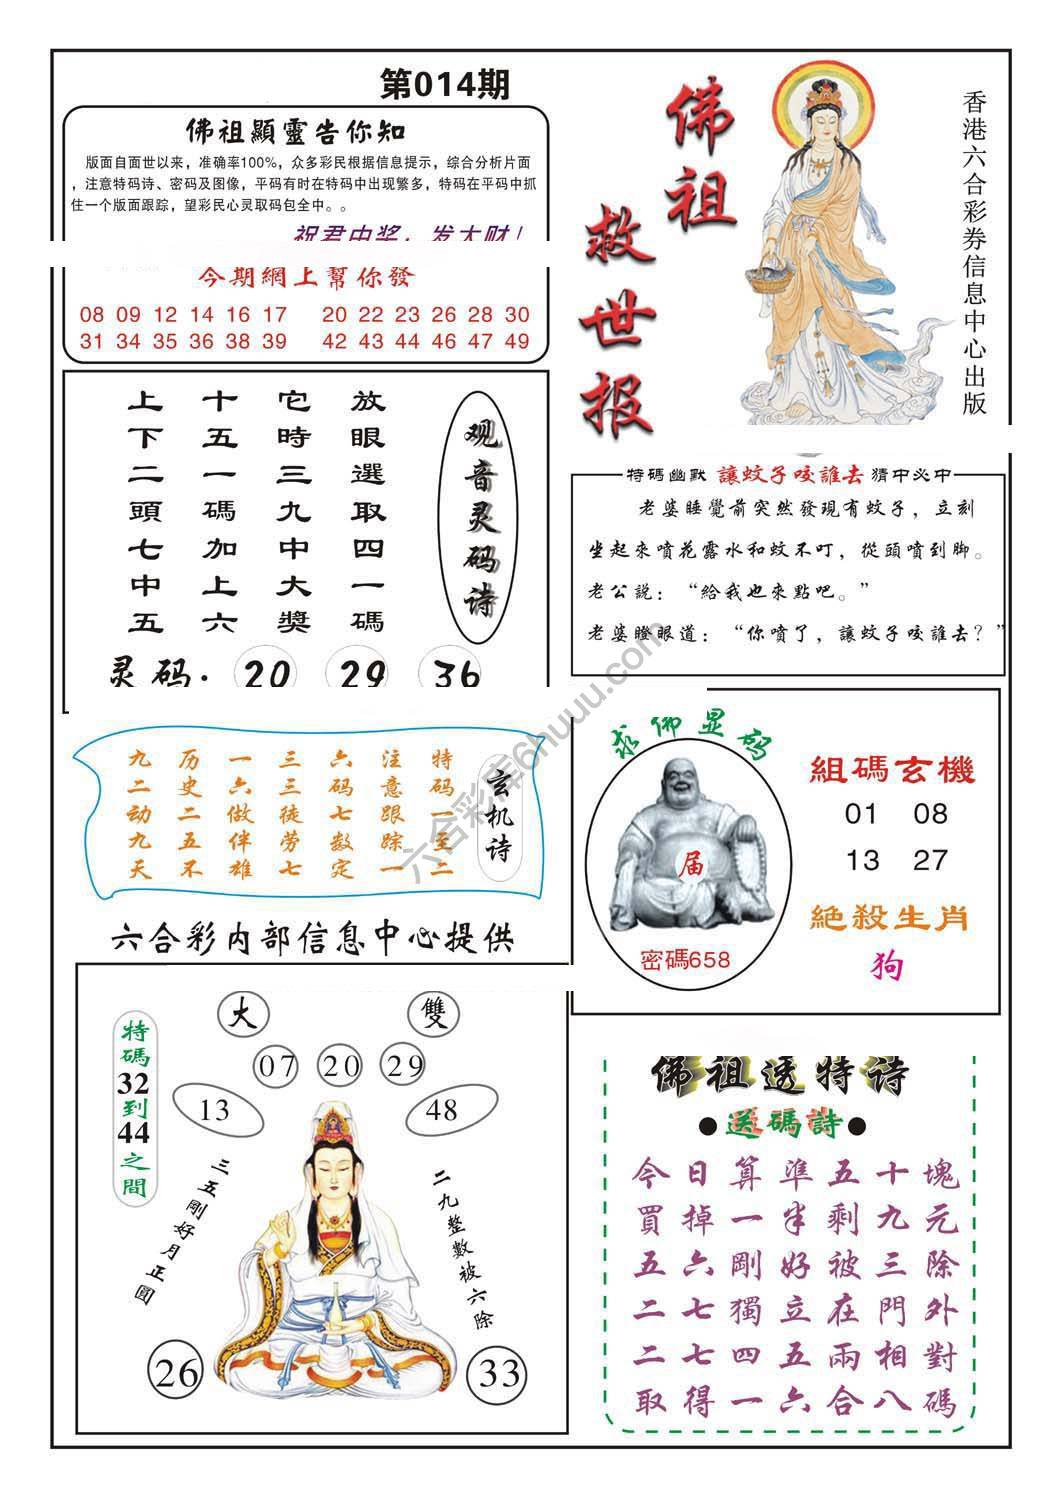 第014期
佛祖顯靈告你知
版面自面世以来，准确率100%，众多彩民根据信息提示，综合分析片面
，注意特码诗、密码及图像，平码有时在特码中出现繁多，特码在平码中抓
住一个版面跟踪，望彩民心灵取码包全中。。
祝君中奖，发大财！
今期網上幫你發
08 09 12 14 16 17 20 22 23 26 28 30
31 34 35 36 38 39 42 43 44 46 47 49
佛祖
救世报
香港六合彩券信息中心出版
观音灵码诗
放眼選取四一碼
它時三九中大獎
十五一碼加上六
上下二頭七中五
灵码. 20 29 36
特碼幽默 讓蚊子咬誰去 猜中必中
老婆睡覺前突然發現有蚊子，立刻
坐起來噴花露水和蚊不叮，從頭噴到脚。
老公説：“給我也來點吧。”
老婆瞪眼道：“你噴了，讓蚊子咬誰去？”
玄机诗
特码一至二
注意跟踪一
六码七数定
三三徒劳七
一六做伴雄
历史二五不
九二动九天
六合彩内部信息中心提供
求佛显码
届
密碼658
組碼玄機
01 08
13 27
絕殺生肖
狗
大 雙
07 20 29
13 48
特碼32到44之間
三五剛好月正圓
二九整數被六除
26 33
佛祖透特诗
●送碼詩●
今日算準五十塊
買掉一半剩九元
五六剛好被三除
二七獨立在門外
二七四五兩相對
取得一六合八碼
六合彩库6huuu.com